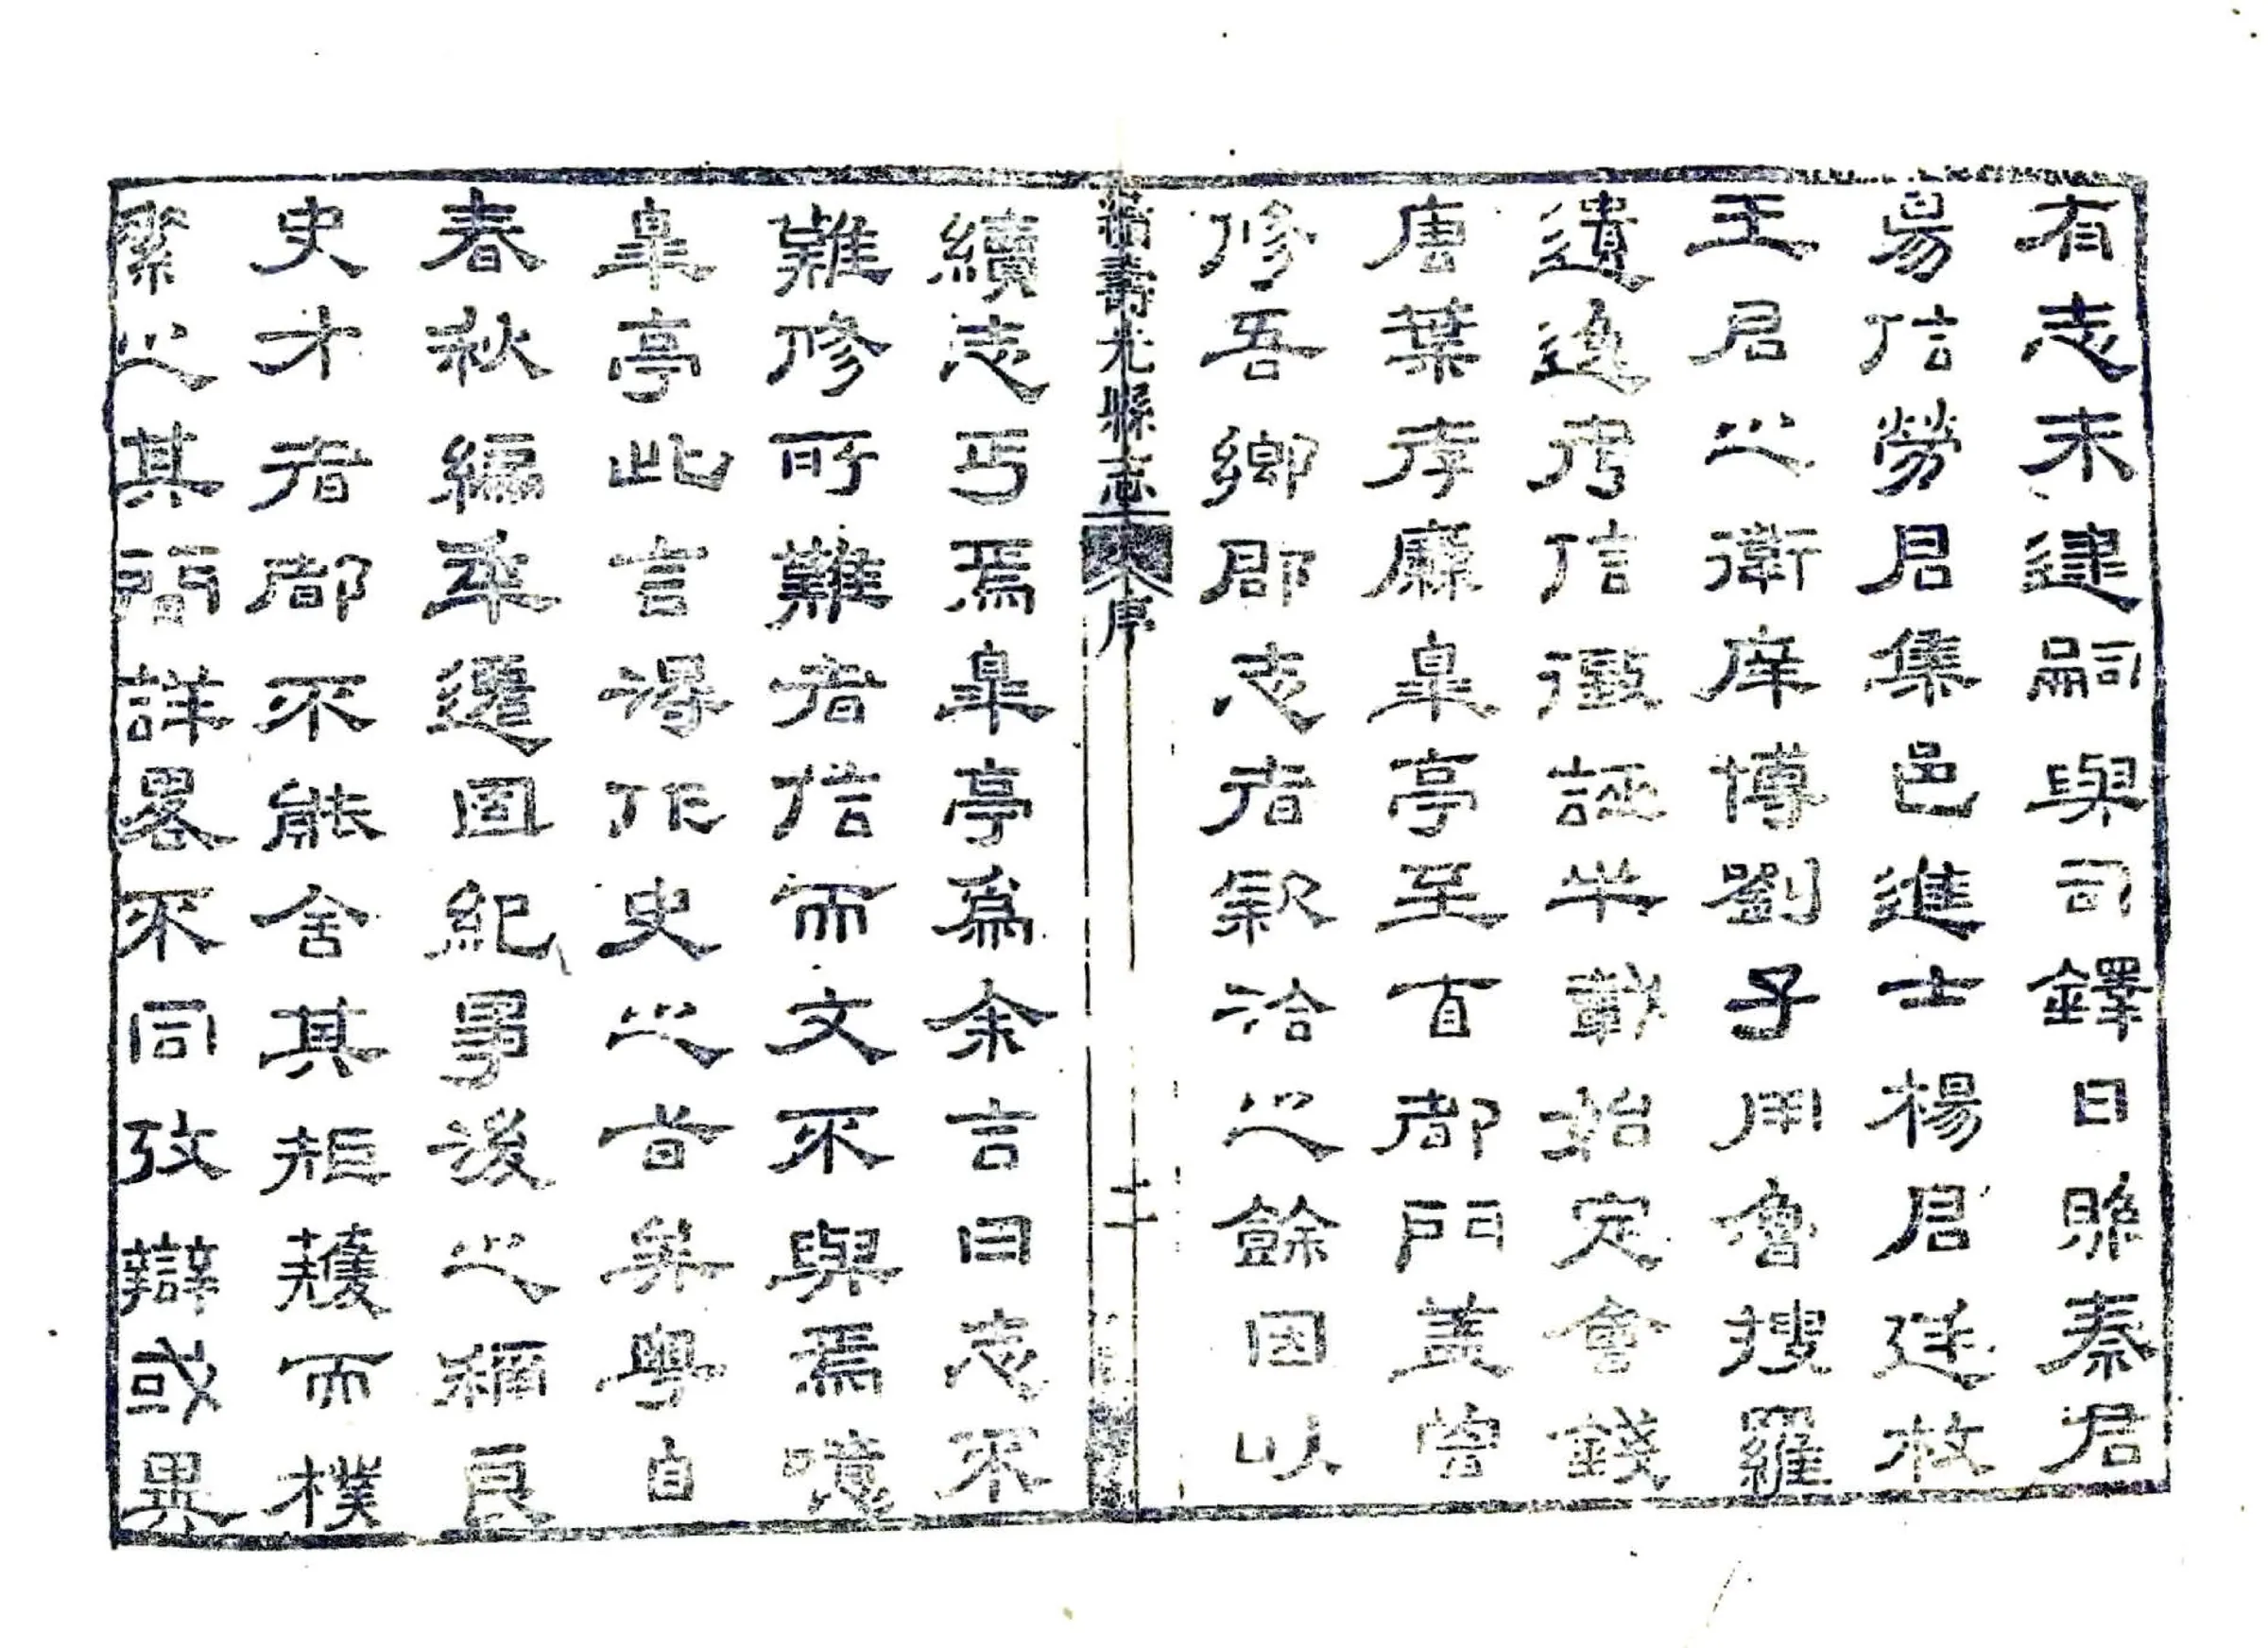 有志未逮嗣與司鐸日縣秦君
昜信勞君集邑進士楊君
王君之衛庠博劉子用魯搜羅
遺逸考信徵誣半載始定會錢
唐葉孝廉皐亭至自都門蓋曾
修吾鄉郡志者款洽之餘因以
壽光縣志 序 二
續志丐焉皐亭爲余言曰志不
難修所難者信而文不與焉噫
皐亭此言得作史之旨矣粵自
春秋編年遷固紀事後之稱良
史才者都不能舍其矩矱而樸
之其簡詳畧不同攷辯或異